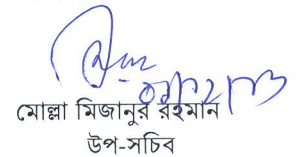 মোল্লা মিজানুর রহমান
উপ-সচিব